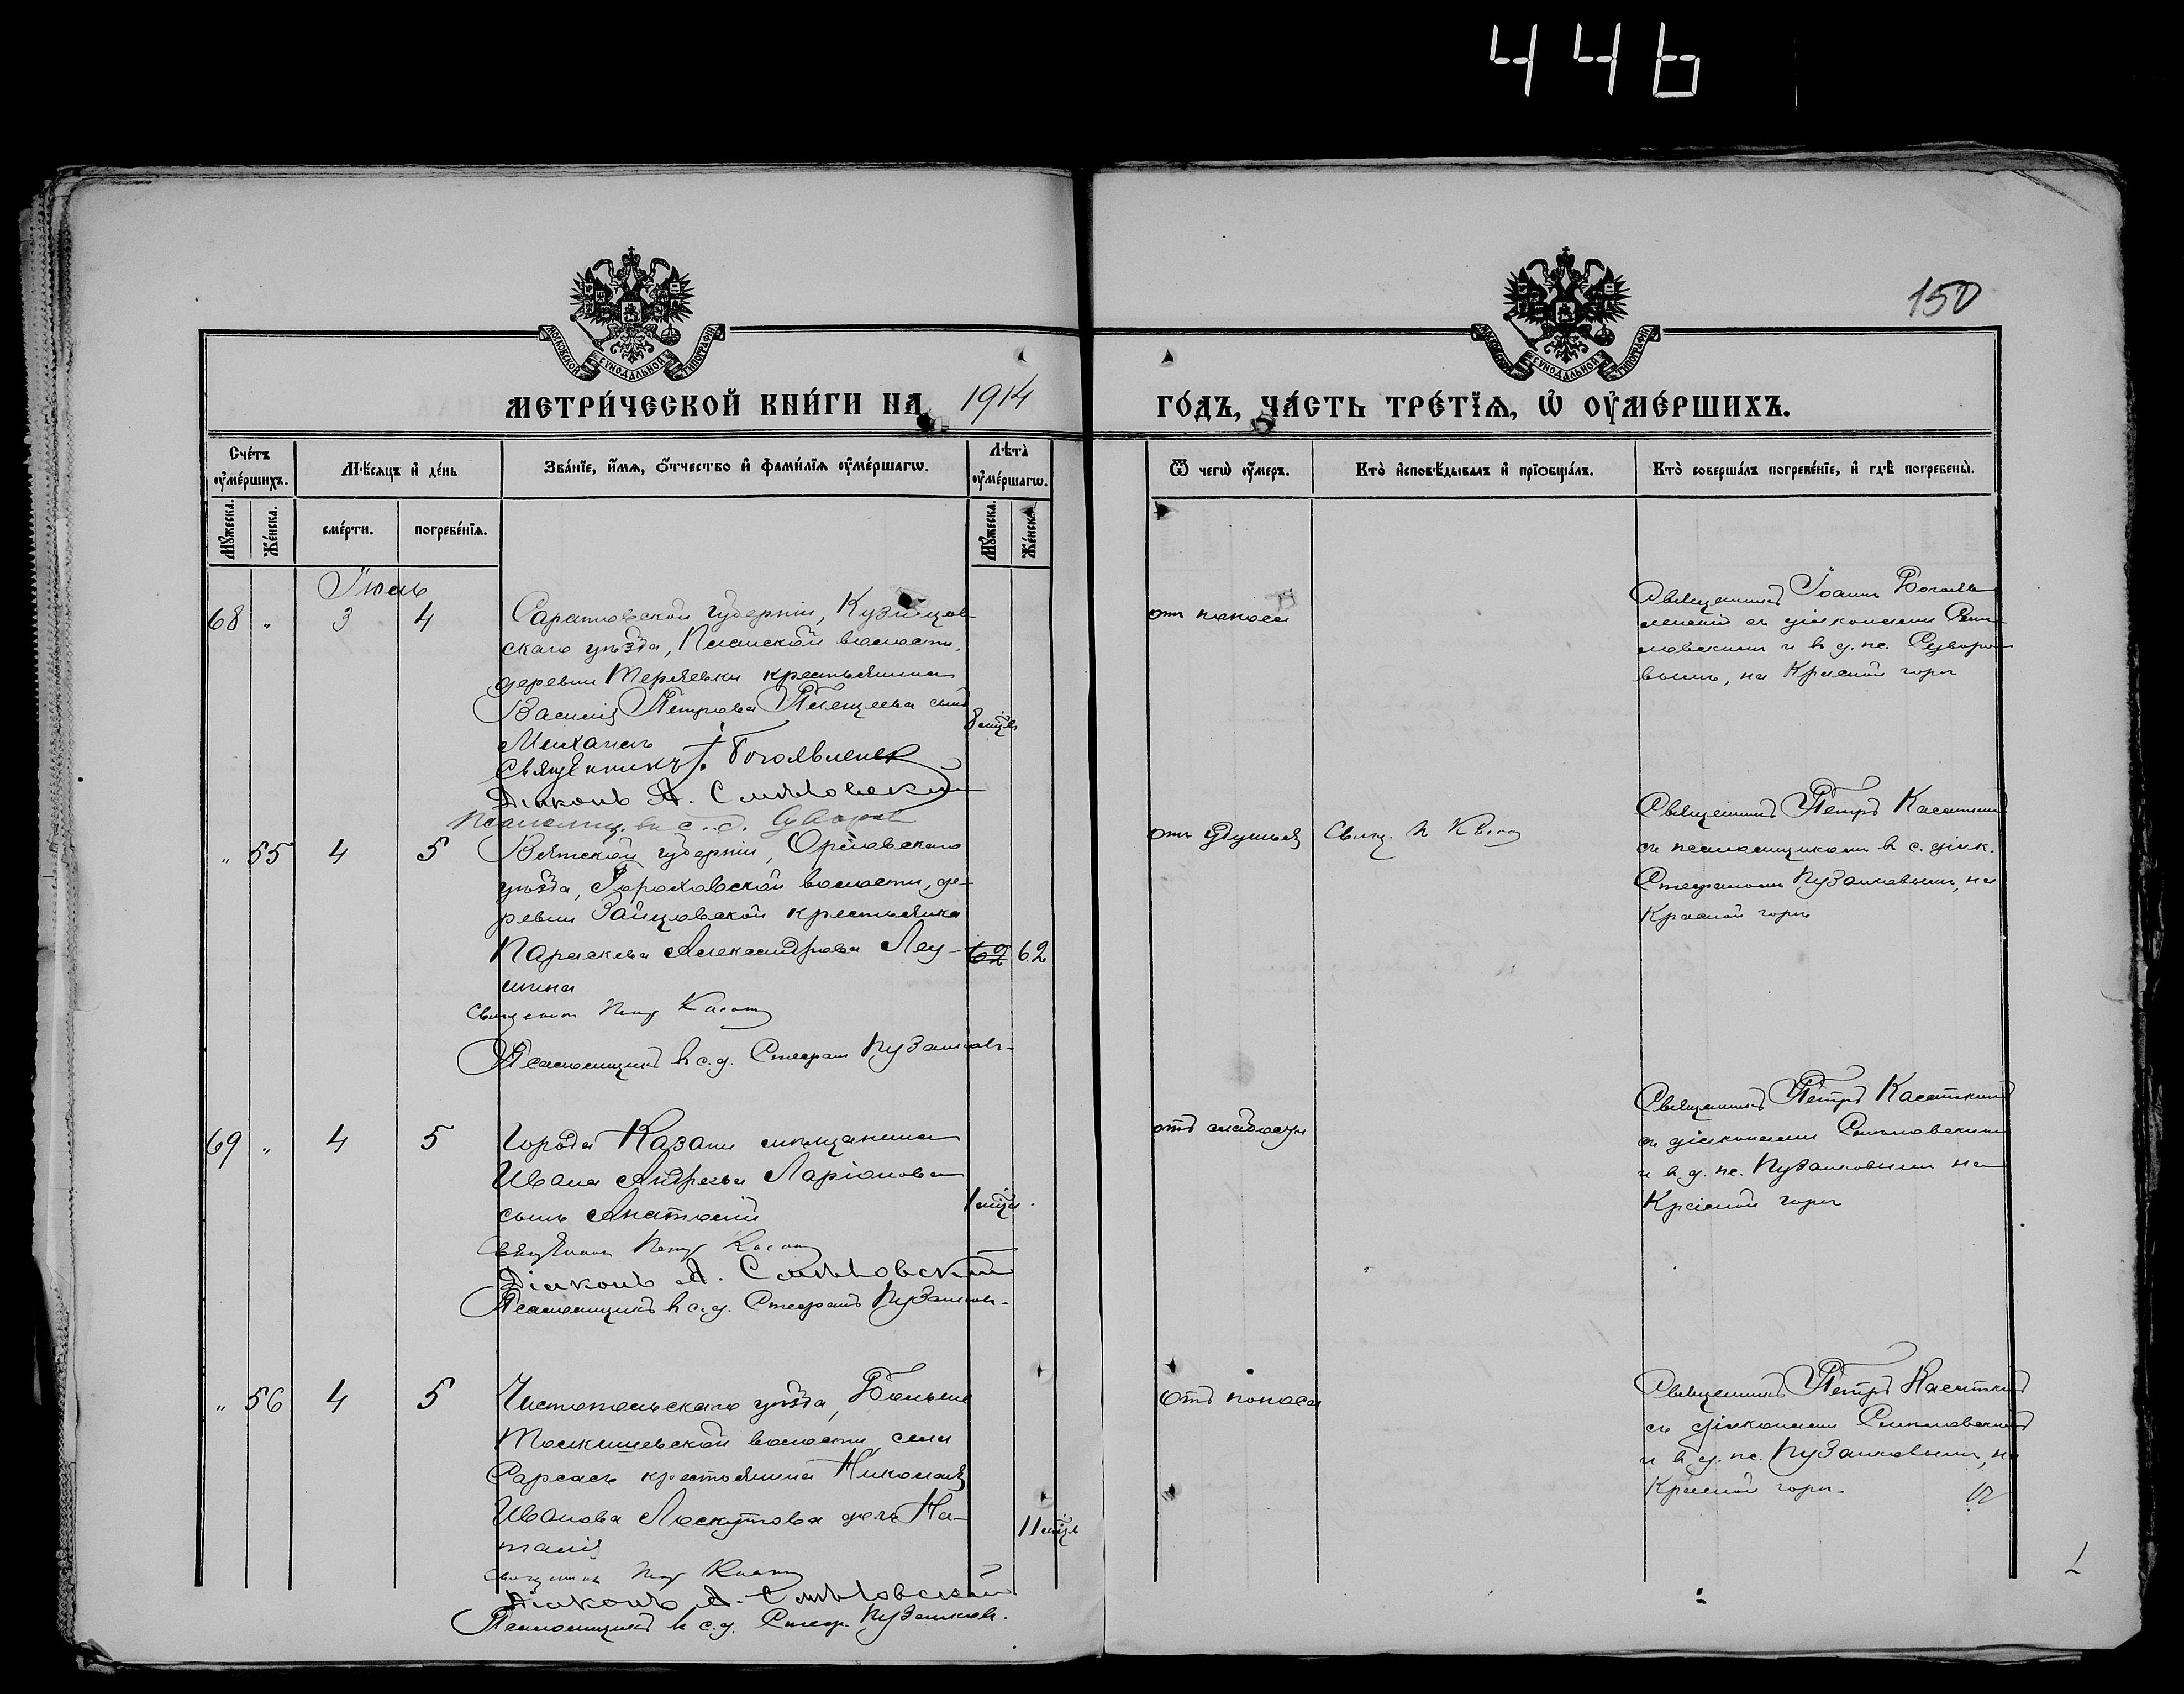 446
150
МОСКОВСКОЙ СѴНОДАЛЬНОЙ ТИПОГРАФІИ
МОСКОВСКОЙ СѴНОДАЛЬНОЙ ТИПОГРАФІИ
МЕТРИ́ЧЕСКОЙ КНИ́ГИ НА 1914 ГО́ДЪ, ЧА́СТЬ ТРЕ́ТЇѦ, Ѡ҆ ОУ҆МЕ́РШИХЪ.
Сче́тъ оу҆ме́ршихъ.
Мѣ́сяцъ и҆ де́нь
Зва́нїе, и҆́мѧ, ѻ҆́тчество и҆ фами́лїѧ оу҆ме́ршагѡ.
Лѣта̀ оу҆ме́ршагѡ.
Ѿ чегѡ̀ оу҆́меръ.
Кто̀ и҆сповѣ́дывалъ и҆ прїѻбща́лъ.
Кто̀ соверша́лъ погребе́нїе, и҆ гдѣ̀ погребены̀.
Мꙋ́жеска.
Же́нска.
сме́рти.
погребе́нїѧ.
Мꙋ́жеска.
Же́нска.
Іюль
68 " 3 4
Саратовской губерніи, Кузнецов
скаго уѣзда, волости,
деревни Терѣевки крестьянина
Василія Петрова сынъ
Михаилъ
8 мцѣв
Священникъ І. Богоявленск
Діаконъ А. Смѣловский
Псаломщ. в с. д. Суворов
отъ поноса
Священникъ Іоаннъ Богояв
ленскій съ діакономъ Смѣ
ловскимъ и в. д. пс. Суворо
вымъ, на Красной горѣ
" 55 4 5
Вятской губерніи, Орловскаго
уѣзда, Гороховской волости, де-
ревни Зайцовской крестьянка
Параскева Александрова Леу-
шина
62 62
Священникъ Петръ Касат
Псаломщикъ в с. д. Стефан Пузанков-
отъ удушья
Свящ. П Касат
Священникъ Петръ Касаткинъ
съ псаломщикомъ в с. діак.
Стефаномъ Пузанковымъ, на
Красной горѣ
69 " 4 5
Города Казани мѣщанина
Ивана Андреева Ларіонова
сынъ Анатолій
1 мцъ.
Священникъ Петръ Касат
Діаконъ А. Смѣловский
Псаломщикъ в с. д. Стефанъ Пузанков-
отъ слабости
Священникъ Петръ Касаткинъ
съ діакономъ Смѣловскимъ
и в д. пс. Пузанковымъ на
Красной горѣ
" 56 4 5
Чистопольскаго уѣзда, Больше
Толкишевской волости, села
Сарсасъ крестьянина Николая
Иванова Лоскутова дочь На-
талія
11 мцѣв
Священникъ Петръ Касат
Діаконъ А. Смѣловский
Псаломщикъ в с. д. Стеф. Пузанков.
Отъ поноса
Священникъ Петръ Касаткинъ
съ діакономъ Смѣловскимъ
и в д. пс. Пузанковымъ, на
Красной горѣ.